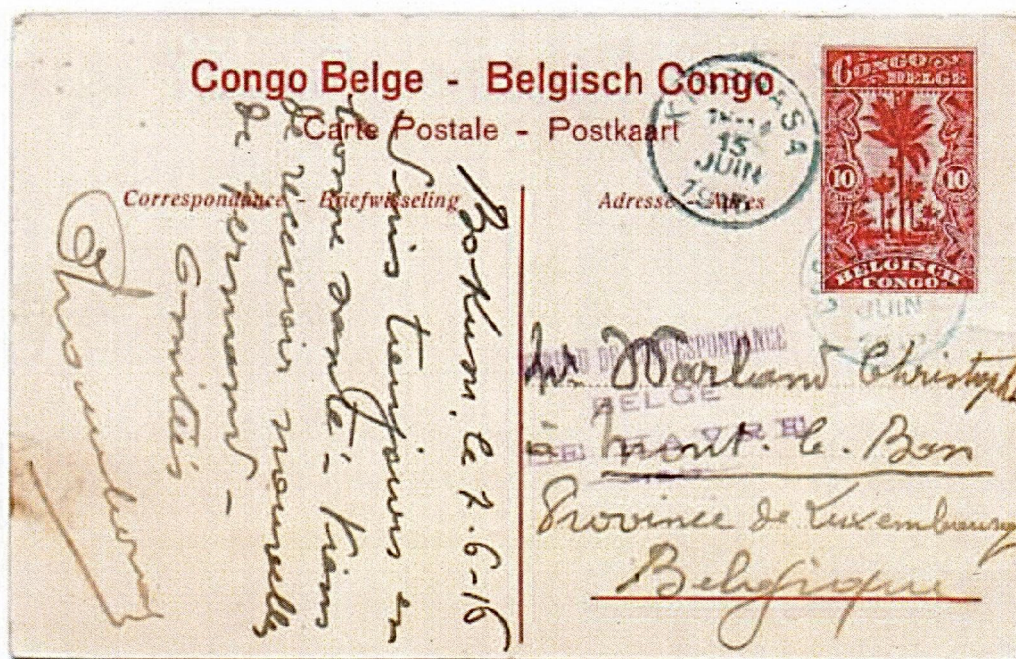 Congo Belge - Belgisch Congo
Carte Postale - Postkaart
Correspondance Briefwisseling
Adresse - Adres
CONGO BELGE
10 10
BELGISCH CONGO
KINSHASA
15
JUIN
JUIN
Bokum, le 7.6-16
Suis toujours en
bonne santé - Viens
de recevoir nouvelles
de Fernand -
Amitiés
BUREAU DE CORRESPONDANCE
BELGE
LE HAVRE
Mr. Christophe
à Mont. le. Ban
Province de Luxembourg
Belgique